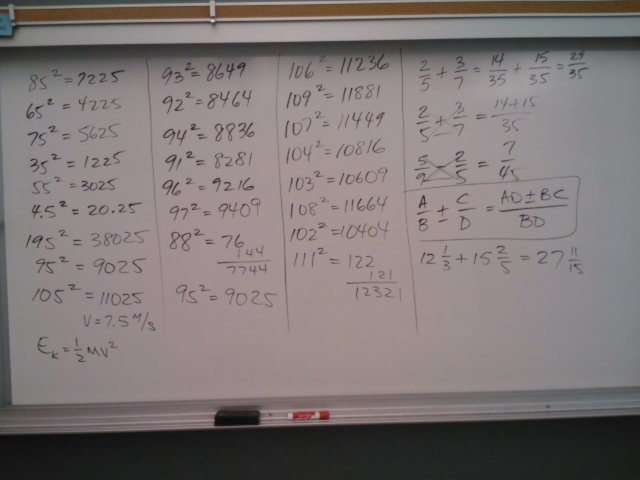 85² = 7225
65² = 4225
75² = 5625
35² = 1225
55² = 3025
4.5² = 20.25
195² = 38025
95² = 9025
105² = 11025
V = 7.5 M/s
Eₖ = 1/2 MV²
93² = 8649
92² = 8464
94² = 8836
91² = 8281
96² = 9216
97² = 9409
88² = 76
144
7744
95² = 9025
106² = 11236
109² = 11881
107² = 11449
104² = 10816
103² = 10609
108² = 11664
102² = 10404
111² = 122
121
12321
2/5 + 3/7 = 14/35 + 15/35 = 29/35
2/5 + 3/7 = 14+15/35
5/9 - 2/5 = 7/45
A/B ± C/D = AD ± BC/BD
12 1/3 + 15 2/5 = 27 11/15